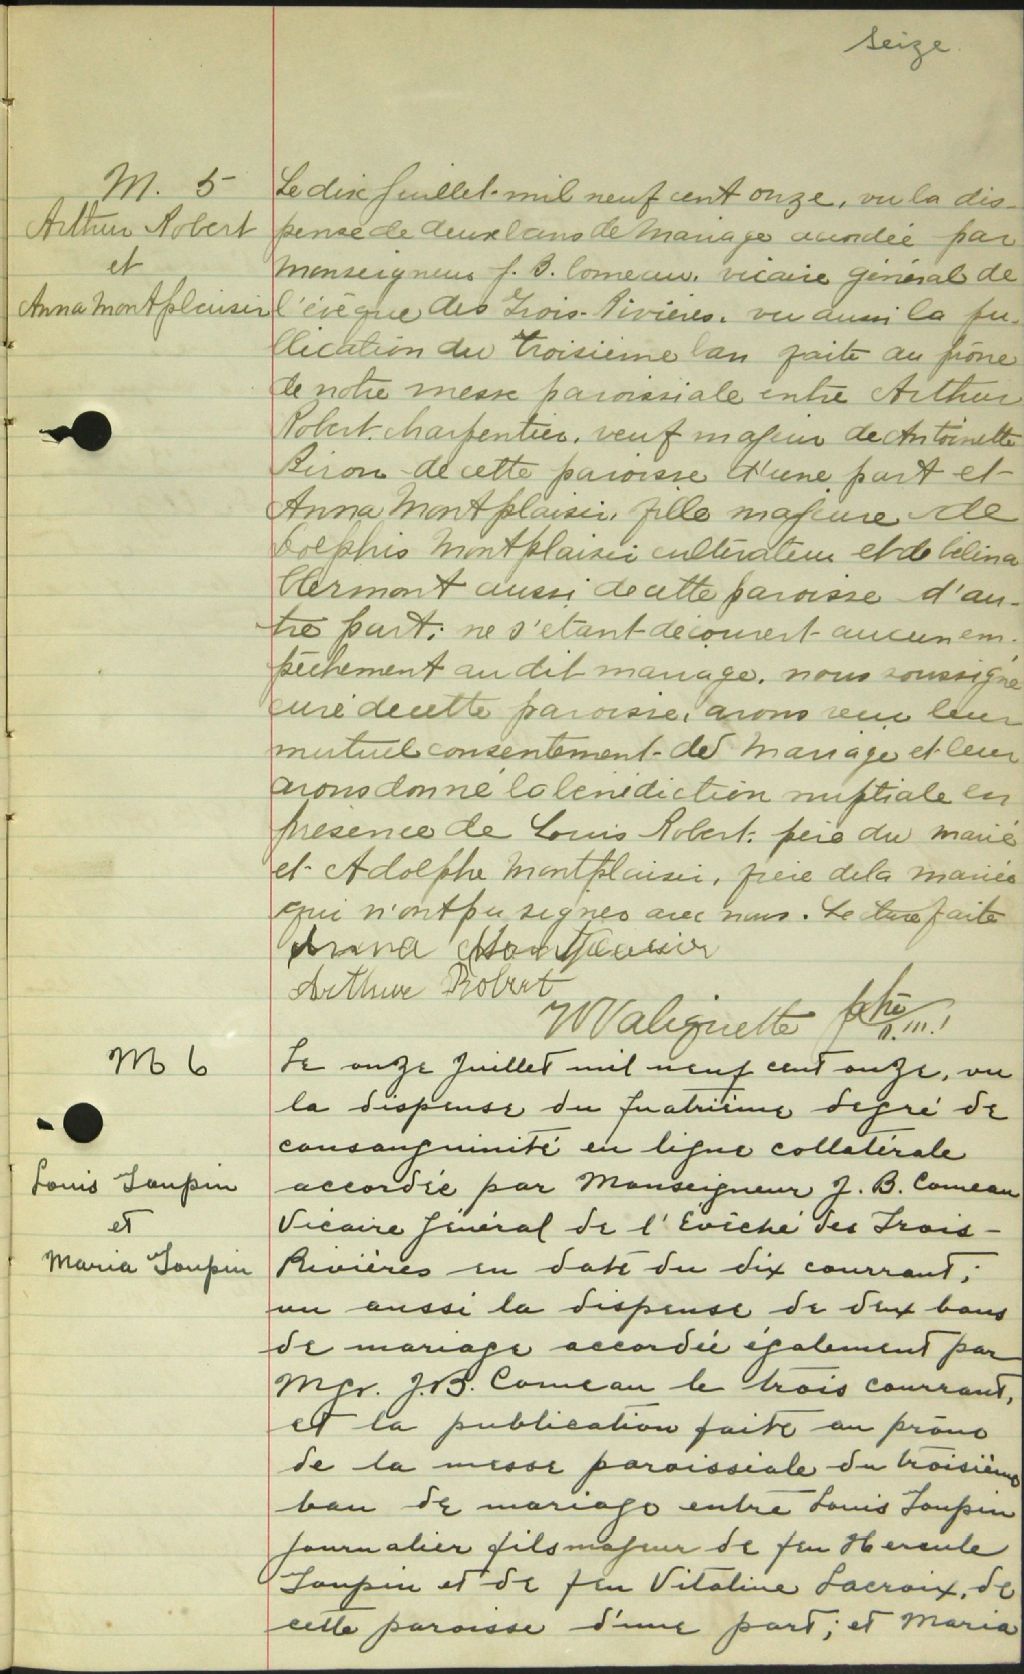 seize
M. 5
Arthur Robert
et
Anna Montplaisir
Le dix juillet mil neuf cent onze, vu la dis-
pense de deux bans de Mariage accordée par
Monseigneur J. B. Comeau, vicaire général de
l'évêque des Trois-Rivières, vu aussi la pu-
blication du troisième ban faite au prône
de notre messe paroissiale entre Arthur
Robert, charpentier, veuf majeur de Antoinette
Biron de cette paroisse d'une part et
Anna Montplaisir, fille majeure de
Dolphis Montplaisir cultivateur et de Célina
Clermont aussi de cette paroisse d'au-
tre part; ne s'étant découvert aucun em-
pêchement au dit mariage, nous soussigné
curé de cette paroisse, avons reçu leur
mutuel consentement de Mariage et leur
avons donné la bénédiction nuptiale en
présence de Louis Robert, père du marié
et Adolphe Montplaisir, frère de la mariée
qui n'ont pu signer avec nous. Lecture faite
Anna Montplaisir
Arthur Robert
Valiquette ptre
M 6
Louis Toupin
et
Maria Toupin
Le onze juillet mil neuf cent onze, vu
la dispense du quatrième degré de
consanguinité en ligne collatérale
accordée par Monseigneur J. B. Comeau
Vicaire Général de l'Évêché des Trois-
Rivières en date du dix courrant;
vu aussi la dispense de deux bans
de mariage accordée également par
Mgr. J.B. Comeau le trois courrant,
et la publication faite au prône
de la messe paroissiale du troisième
ban de mariage entre Louis Toupin
journalier fils majeur de feu Hercule
Toupin et de feu Vitaline Lacroix, de
cette paroisse d'une part; et Maria